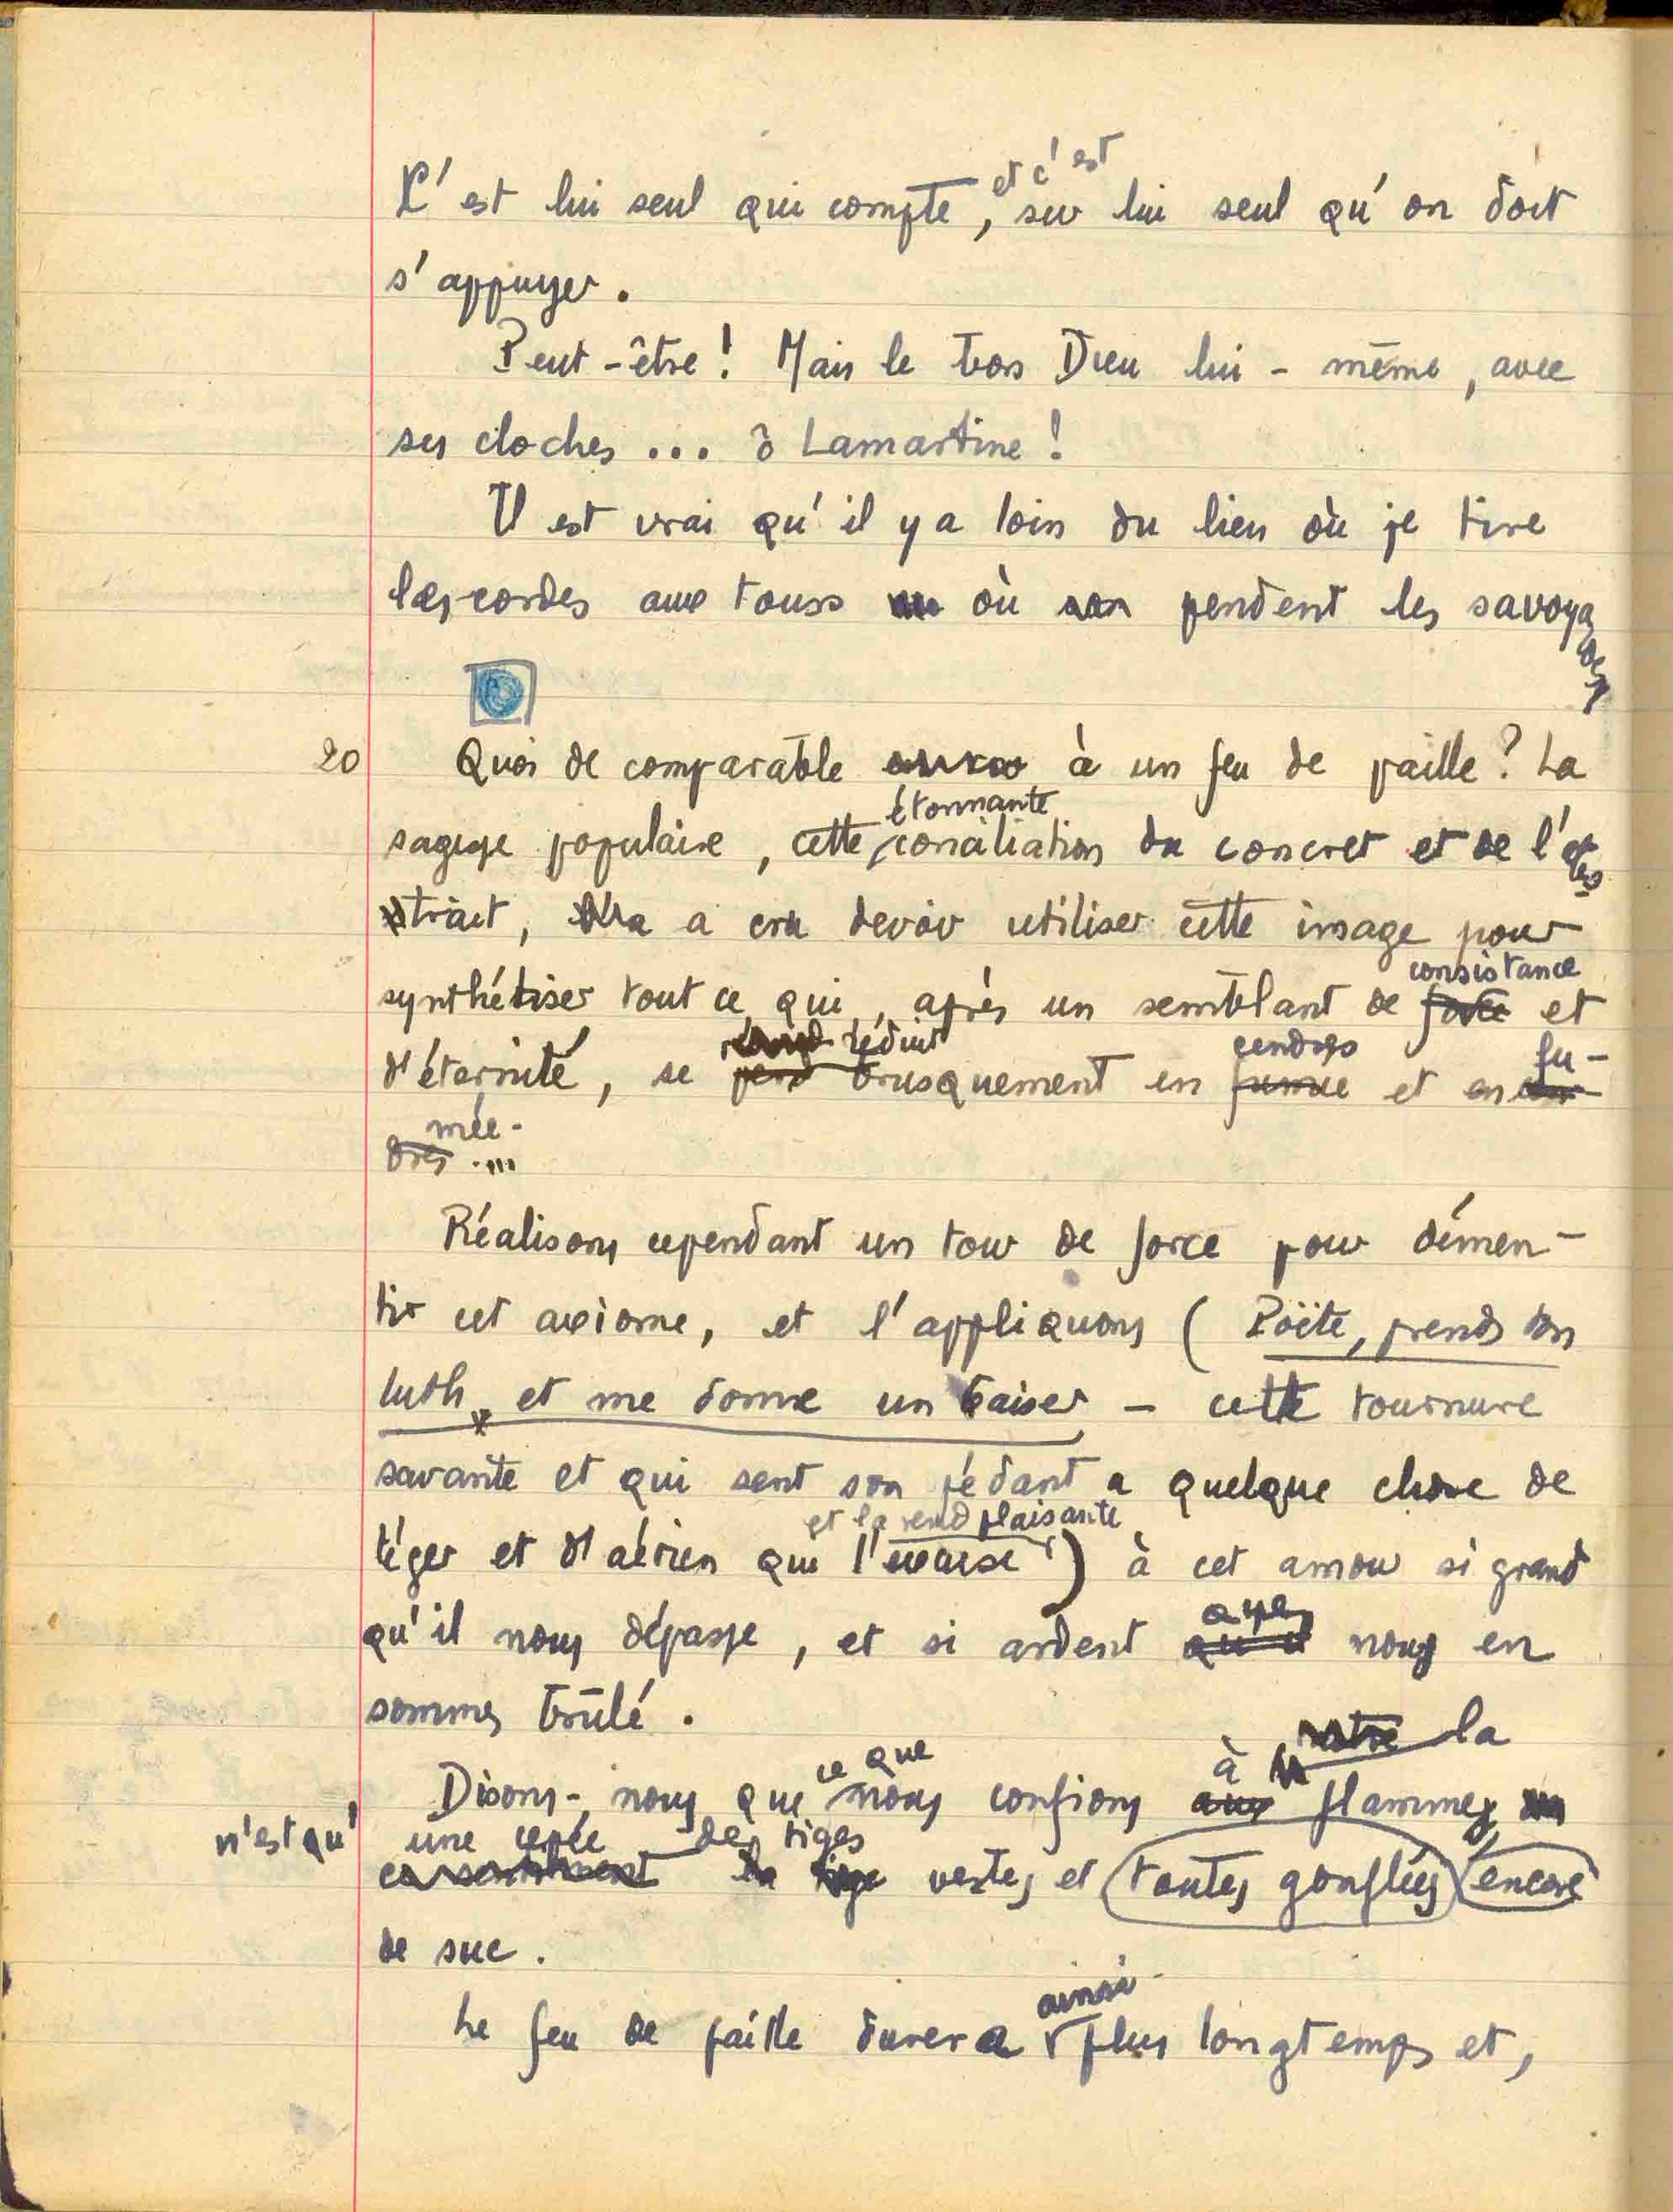 et c'est
C'est lui seul qui compte, sur lui seul qu'on doit
s'appuyer.
Peut-être! Mais le bon Dieu lui-même, avec
ses cloches... ô Lamartine!
Il est vrai qu'il y a loin du lieu où je tire
les cordes aux tours où pendent les savoya
des
20 Quoi de comparable à un feu de paille? La
étonnante
sagesse populaire, cette conciliation du concret et de l'abs
trait, a cru devoir utiliser cette image pour
consistance
synthétiser tout ce qui, après un semblant de force et
réduit cendres fu-
d'éternité, se perd brusquement en fumée et en cen-
mée.
dres ....
Réalisons cependant un tour de force pour démen-
tir cet axiome, et l'appliquons (Poëte, prends ton
luth, et me donne un baiser - cette tournure
savante et qui sent son pédant a quelque chose de
et la rend plaisante
léger et d'aérien qui l'excuse) à cet amour si grand
que
qu'il nous dépasse, et si ardent qu'il nous en
sommes brûlé.
ce que à notre la
Disons-nous que nous confions aux flammes
n'est qu' une cépée des tiges
la tige vertes et toutes gonflées encore
de suc.
ainsi
Le feu de paille durera plus longtemps et,